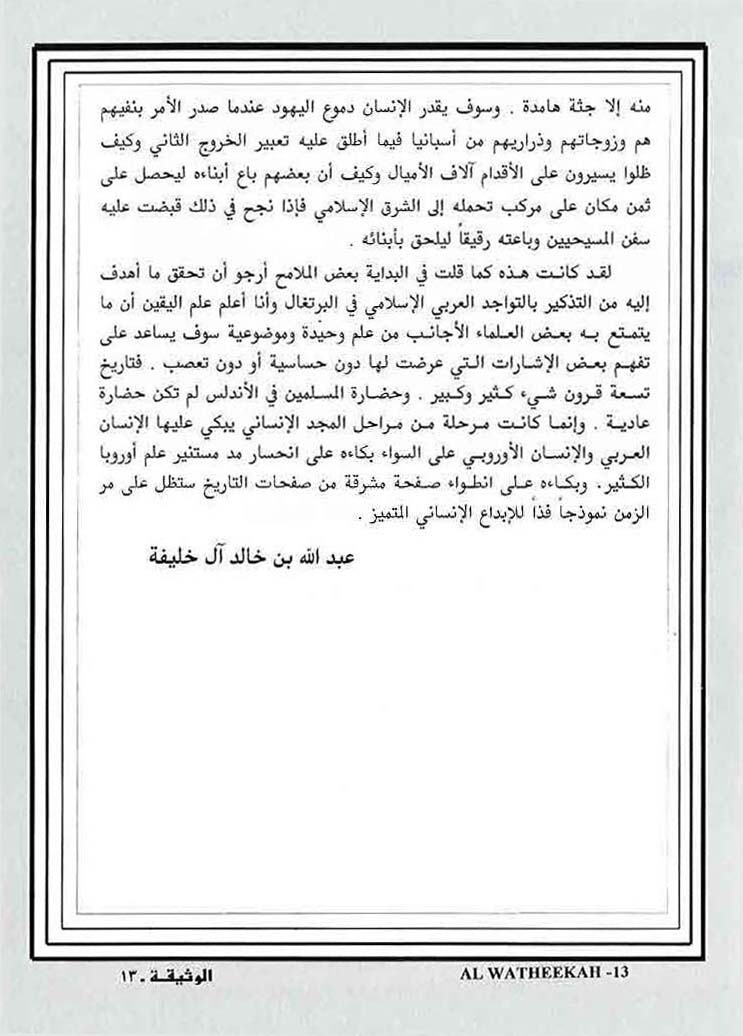 منه إلا جثة هامدة . وسوف يقدر الإنسان دموع اليهود عندما صدر الأمر بنفيهم
هم وزوجاتهم وذراريهم من أسبانيا فيما أطلق عليه تعبير الخروج الثاني وكيف
ظلوا يسيرون على الأقدام آلاف الأميال وكيف أن بعضهم باع أبناءه ليحصل على
ثمن مكان على مركب تحمله إلى الشرق الإسلامي فإذا نجح في ذلك قبضت عليه
سفن المسيحيين وباعته رقيقاً ليلحق بأبنائه .
لقد كانت هذه كما قلت في البداية بعض الملامح أرجو أن تحقق ما أهدف
إليه من التذكير بالتواجد العربي الإسلامي في البرتغال وأنا أعلم علم اليقين أن ما
يتمتع به بعض العلماء الأجانب من علم وحيدة وموضوعية سوف يساعد على
تفهم بعض الإشارات التي عرضت لها دون حساسية أو دون تعصب . فتاريخ
تسعة قرون شيء كثير وكبير . وحضارة المسلمين في الأندلس لم تكن حضارة
عادية . وإنما كانت مرحلة من مراحل المجد الإنساني يبكي عليها الإنسان
العربي والإنسان الأوروبي على السواء بكاءه على انحسار مد مستنير علم أوروبا
الكثير. وبكاءه على انطواء صفحة مشرقة من صفحات التاريخ ستظل على مر
الزمن نموذجاً فذاً للإبداع الإنساني المتميز .
عبد الله بن خالد آل خليفة
الوثيقة - ١٣
AL WATHEEKAH -13